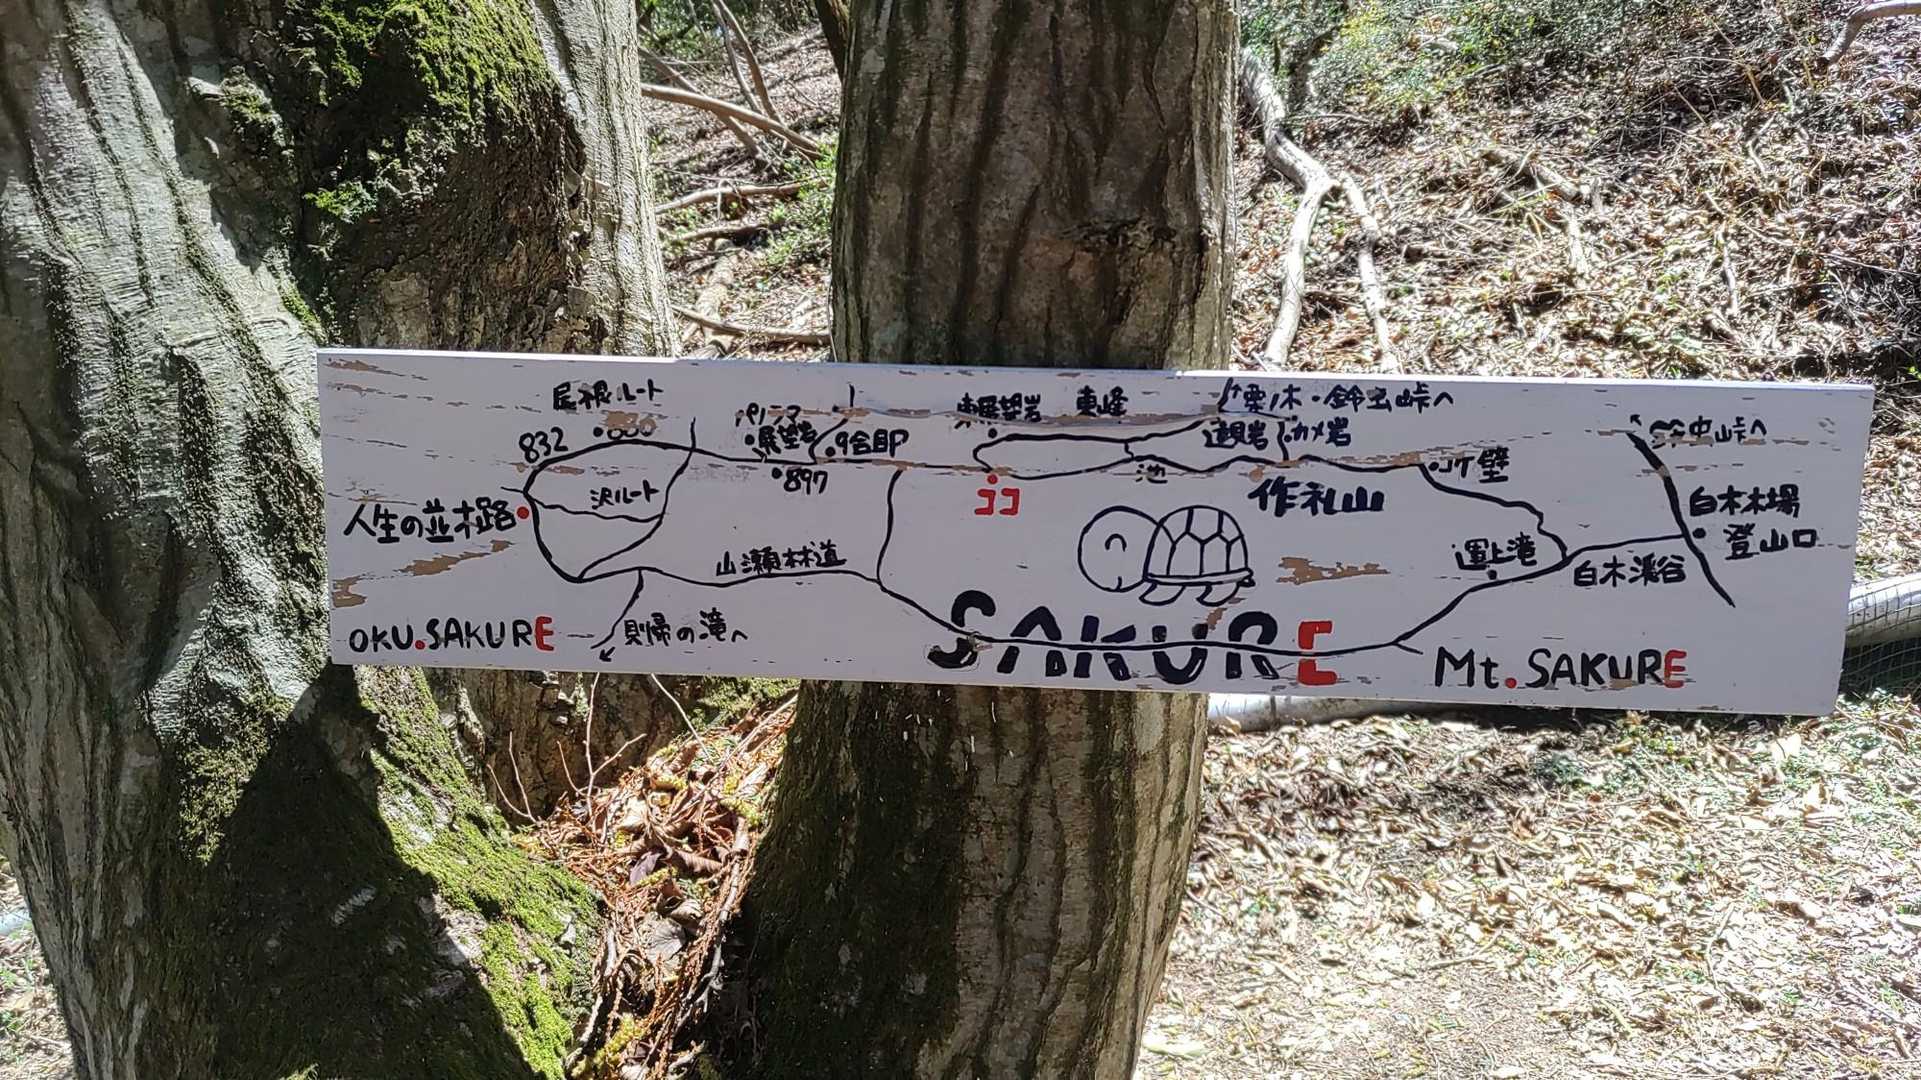 尾根ルート
832
沢ルート
人生の並木路
パノラマ
展望岩
9合目
897
東展望岩
東峰
栗ノ木・鈴虫峠へ
道見岩
カメ岩
池
ココ
作礼山
コケ壁
鈴虫峠へ
白木木場
登山口
白木渓谷
山瀬林道
帰の滝へ
OKU.SAKURE
SAKURE
Mt.SAKURE